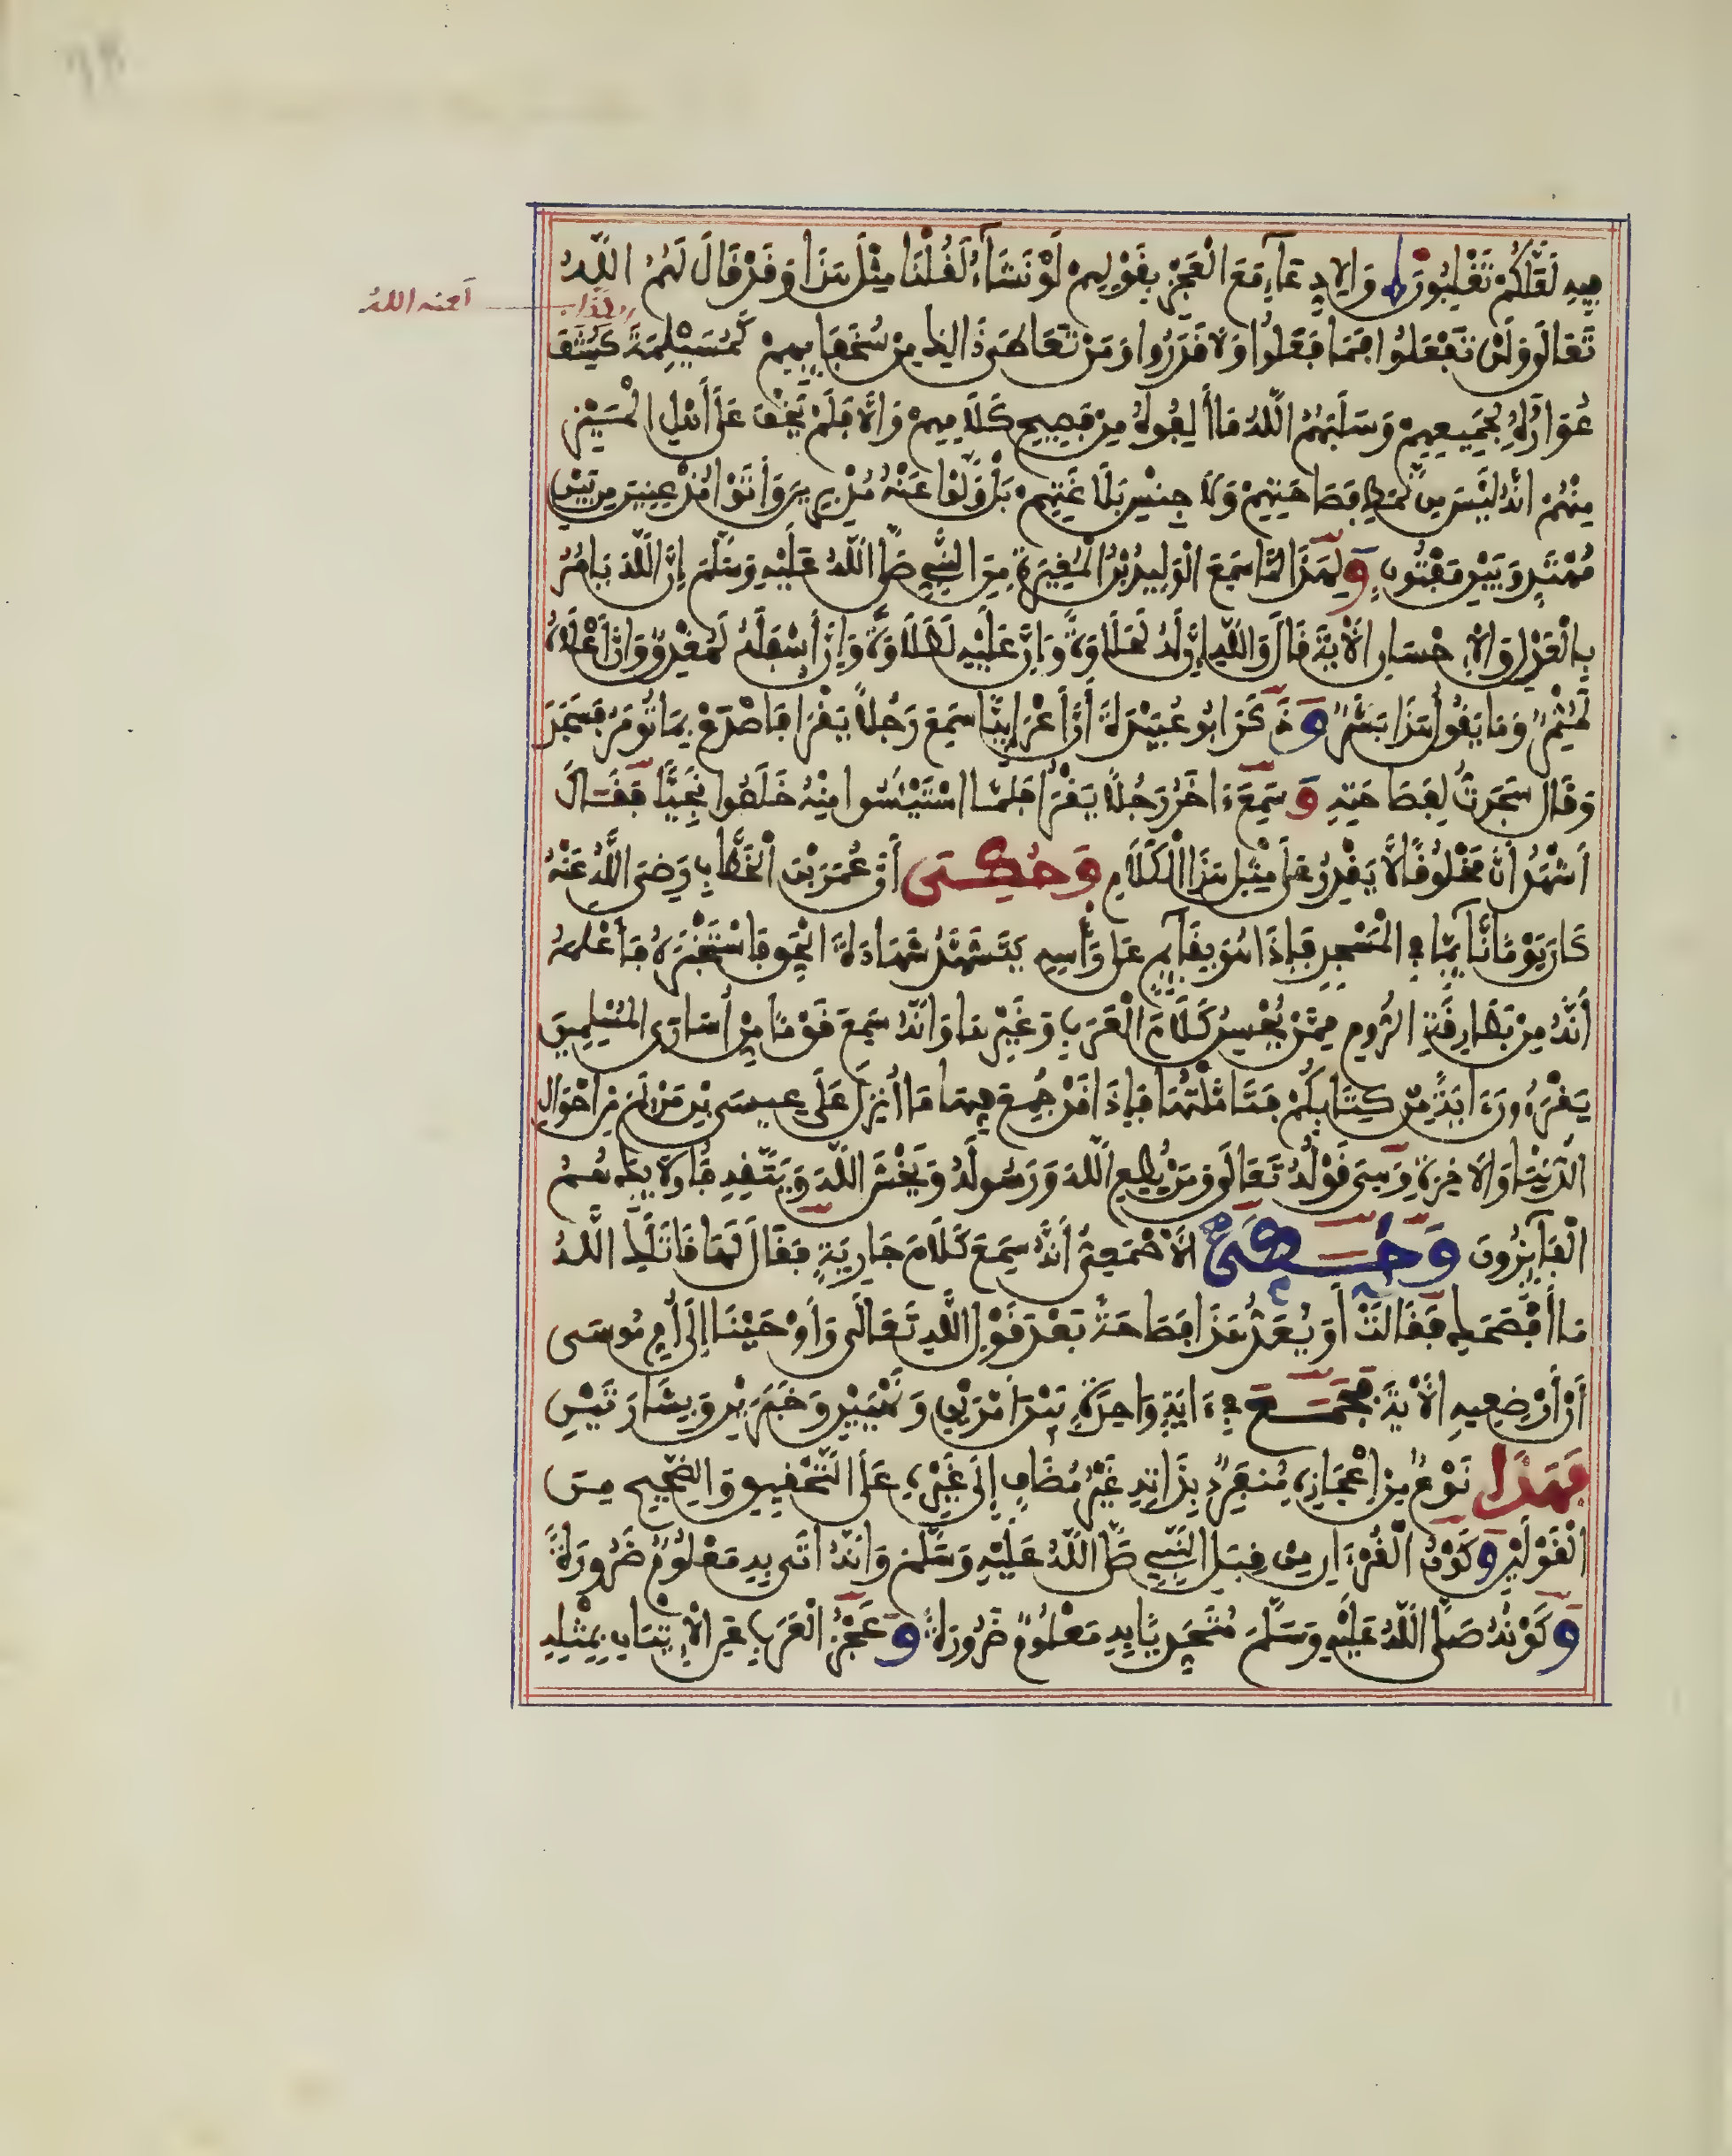 فِيهِ لَعَلَّكُمْ تَغْلِبُونَ وَالِادِّعَآءِ مَعَ الْعَجْزِ بِقَوْلِهِمْ لَوْ نَشَآءُ لَقُلْنَا مِثْلَ هَذَا وَقَدْ قَالَ لَهُمُ اللَّهُ
لعنه الله
تَعَالَى وَلَن تَفْعَلُوا فَمَا فَعَلُوا وَلَا قَدَرُوا وَمَنْ تَعَاطَى ذَالِكَ مِنْ سُخَفَايِهِمْ كَمُسَيْلِمَةَ كُشِفَ
عُوَارُهُ لِجَمِيعِهِمْ وَسَلَبَهُمُ اللَّهُ مَا أَلِفُوهُ مِنْ فَصِيحِ كَلَامِهِمْ وَإِلَّا فَلَمْ يَخْفَ عَلَى أَهْلِ الْمَيْزِ
مِنْهُمْ أَنَّهُ لَيْسَ مِن نَّمَطِ فَصَاحَتِهِمْ وَلَا جِنْسِ بَلَاغَتِهِمْ بَلْ وَلَّوْا عَنْهُ مُدْبِرِينَ وَأَتَوْا مُذْعِنِينَ مِن بَيْنِ
مُهْتَدٍ وَبَيْنِ مَفْتُونٍ وَلِهَذَا لَمَّا سَمِعَ الْوَلِيدُ بْنُ الْمُغِيرَةِ مِنَ النَّبِيِّ صَلَّى اللَّهُ عَلَيْهِ وَسَلَّمَ إِنَّ اللَّهَ يَامُرُ
بِالْعَدْلِ وَالْإِحْسَانِ الْآيَةَ قَالَ وَاللَّهِ إِنَّ لَهُ لَحَلَاوَةً وَإِنَّ عَلَيْهِ لَطَلَاوَةً وَإِنَّ أَسْفَلَهُ لَمُغْدِقٌ وَإِنَّ أَعْلَاهُ
لَمُثْمِرٌ وَمَا يَقُولُ هَذَا بَشَرٌ وَذَكَرَ ابُو عُبَيْدٍ أَنَّ أَعْرَابِيًّا سَمِعَ رَجُلًا يَقْرَأُ فَاصْدَعْ بِمَا تُومَرُ فَسَجَدَ
وَقَالَ سَجَدتُّ لِفَصَاحَتِهِ وَسَمِعَ ءَاخَرُ رَجُلًا يَقْرَأُ فَلَمَّا اسْتَيْئَسُوا مِنْهُ خَلَصُوا نَجِيًّا فَقَالَ
أَشْهَدُ أَنَّ مَخْلُوقًا لَا يَقْدِرُ عَلَى مِثْلِ هَذَا الْكَلَامِ وَحُكِيَ أَنَّ عُمَرَ بْنَ الْخَطَّابِ رَضِيَ اللَّهُ عَنْهُ
كَانَ يَوْمًا نَآيِمًا فِي الْمَسْجِدِ فَإِذَا هُوَ بِقَآيِمٍ عَلَى رَأْسِهِ يَتَشَهَّدُ شَهَادَةَ الْحَقِّ فَاسْتَخْبَرَهُ فَأَعْلَمَهُ
أَنَّهُ مِنْ بَطَارِقَةِ الرُّومِ مِمَّنْ يُحْسِنُ كَلَامَ الْعَرَبِ وَغَيْرِهَا وَأَنَّهُ سَمِعَ قَوْمًا مِنْ أُسَارَى الْمُسْلِمِينَ
يَقْرَءُونَ ءَايَةً مِّن كِتَابِكُمْ فَتَأَمَّلْتُهَا فَإِذَا قَدْ جُمِعَ فِيهَا مَا أُنْزِلَ عَلَى عِيسَى بْنِ مَرْيَمَ مِنْ أَحْوَالِ
الدُّنْيَا وَالْآخِرَةِ وَهِيَ قَوْلُهُ تَعَالَى وَمَنْ يُطِعِ اللَّهَ وَرَسُولَهُ وَيَخْشَ اللَّهَ وَيَتَّقِهِ فَأُولَئِكَ هُمُ
الْفَآيِزُونَ وَحَكَى الْأَصْمَعِيُّ أَنَّهُ سَمِعَ كَلَامَ جَارِيَةٍ فَقَالَ لَهَا قَاتَلَكِ اللَّهُ
مَا أَفْصَحَكِ فَقَالَتْ أَوَ يُعَدُّ هَذَا فَصَاحَةً بَعْدَ قَوْلِ اللَّهِ تَعَالَى وَأَوْحَيْنَا إِلَى أُمِّ مُوسَى
أَنْ أَرْضِعِيهِ الْآيَةَ فَجَمَعَ فِي ءَايَةٍ وَاحِدَةٍ بَيْنَ أَمْرَيْنِ وَنَهْيَيْنِ وَخَبَرَيْنِ وَبِشَارَتَيْنِ
فَهَذَا نَوْعٌ مِنْ إِعْجَازِهِ مُنْفَرِدٌ بِذَاتِهِ غَيْرُ مُضَافٍ إِلَى غَيْرِهِ عَلَى التَّحْقِيقِ وَالصَّحِيحِ مِنَ
الْقَوْلَيْنِ وَكَوْنُ الْقُرْءَانِ مِن قِبَلِ النَّبِيِّ صَلَّى اللَّهُ عَلَيْهِ وَسَلَّمَ وَأَنَّهُ أَتَى بِهِ مَعْلُومٌ ضَرُورَةً
وَكَوْنُهُ صَلَّى اللَّهُ عَلَيْهِ وَسَلَّمَ مُتَحَدِّيًا بِهِ مَعْلُومٌ ضَرُورَةً وَعَجْزُ الْعَرَبِ عَنِ الْإِتْيَانِ بِمِثْلِهِ